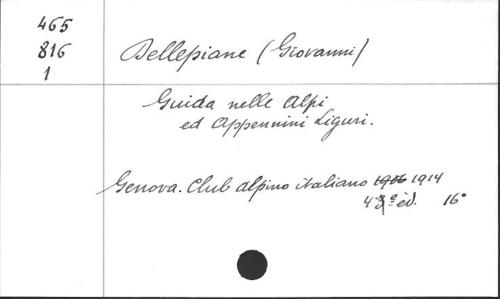 465
816
1
Dellepiane (Giovanni)
Guida nelle Alpi
ed Appennini Liguri.
Genova. Club alpino italiano 1906 1914
4ª 3ª éd. 16°